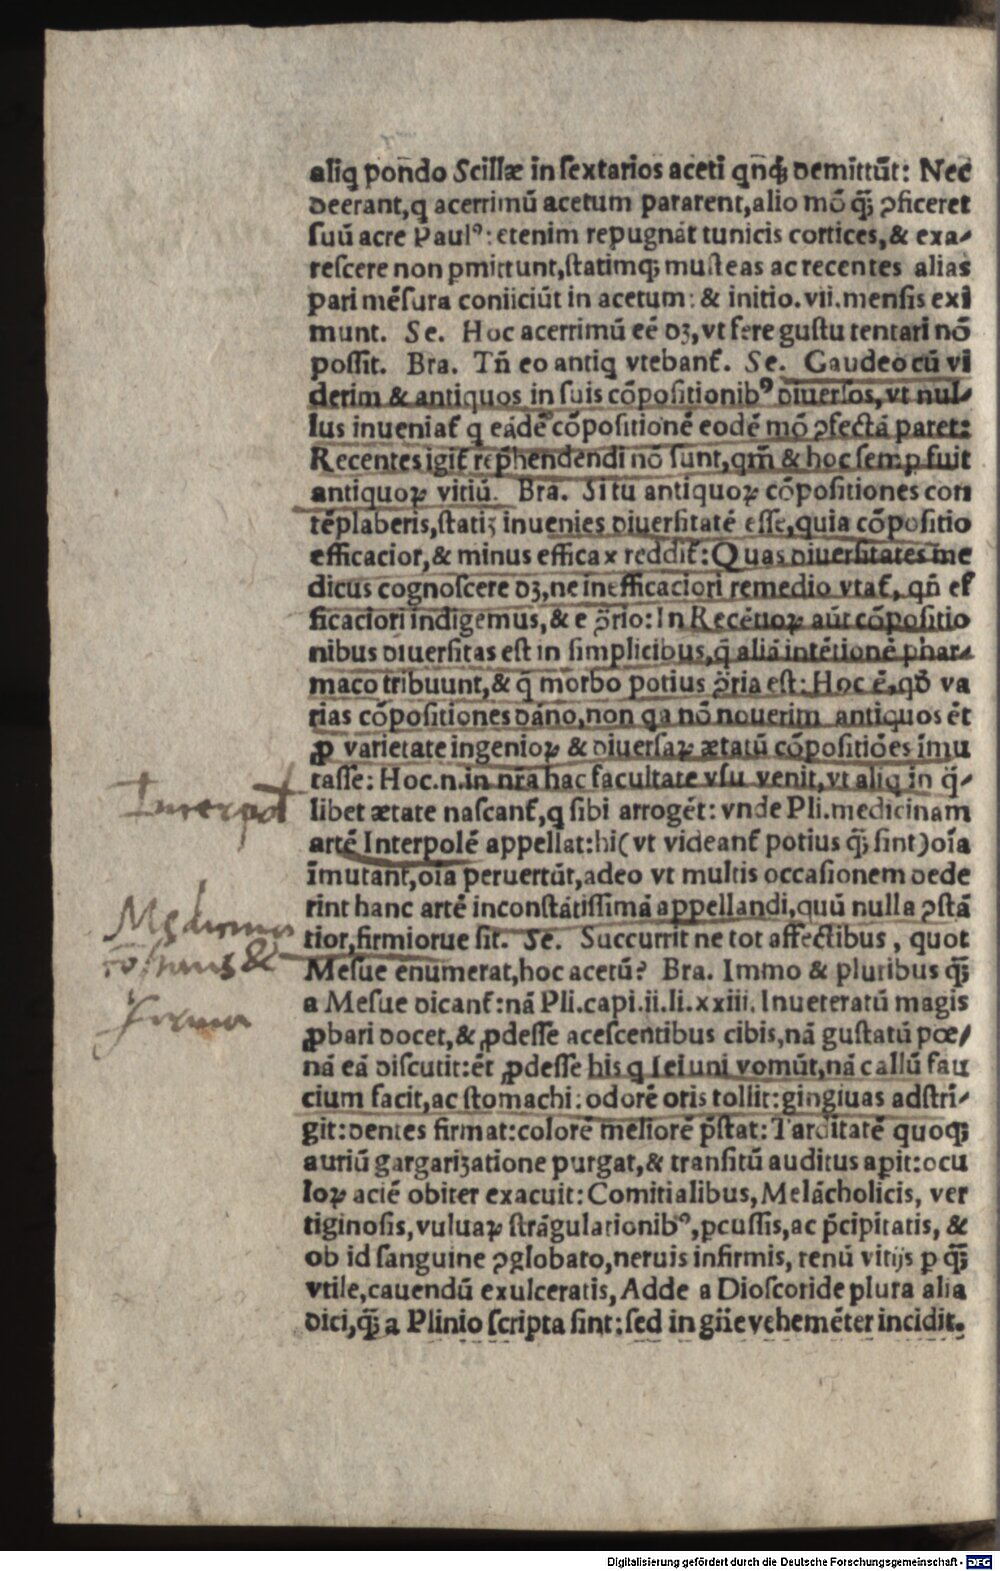 aliq̃ pon̄do Scillæ in ſextarios aceti qñq; demittūt: Nec
deerant,q acerrimū acetum pararent,alio mō q̄; ꝯficeret
ſuū acre Paulꝰ:etenim repugnāt tunicis cortices,& exa⸗
reſcere non ꝑmittunt,ſtatimq; muſteas ac recentes alias
pari mēſura coniiciūt in acetum: & initio.vii.menſis exi
munt. Se. Hoc acerrimū eē dꝫ,vt fere guſtu tentari nō
poſſit. Bra. Tñ eo antiq vtebant᷑. Se. Gaudeo cū vi
derim & antiquos in ſuis cōpoſitionibꝰ diuerſos,vt nul⸗
lus inueniat᷑ q eādē cōpoſitionē eodē mō ꝯfectā paret:
Recentes igit᷑ rep̄hendendi nō ſunt,qm̄ & hoc ſemꝑ fuit
antiquoꝝ vitiū. Bra. Si tu antiquoꝝ cōpoſitiones con
tēplaberis,ſtatiꝫ inuenies diuerſitatē eſſe,quia cōpoſitio
efficacior,& minus efficax reddit᷑:Quas diuerſitates me
dicus cognoſcere dꝫ,ne inefficaciori remedio vtat᷑, qñ ef
ficaciori indigemus,& e ꝯ̄rio:In Recētioꝝ aūt cōpoſitio
nibus diuerſitas eſt in ſimplicibus,q̄ aliā intētionē phar⸗
maco tribuunt,& q̄ morbo potius ꝯ̄ria eſt: Hoc ē,qđ va
rias cōpoſitiones dāno,non qa nō nouerim antiquos ēt
ꝓ varietate ingenioꝝ & diuerſaꝝ ætatū cōpoſitiōes īmu
taſſe: Hoc.n.in nr̄a hac facultate vſu venit,vt aliq in q̄⸗
libet ætate naſcant᷑,q ſibi arrogēt: vnde Pli.medicinam
artē Interpolē appellat:hi(vt videant᷑ potius q̄; ſint)oīa
īmutant,oīa peruertūt,adeo vt multis occaſionem dede
rint hanc artē inconſtātiſſimā appellandi,quū nulla ꝯſtā
tior,firmiorue ſit. Se. Succurrit ne tot affectibus, quot
Meſue enumerat,hoc acetū? Bra. Immo & pluribus q̄;
a Meſue dicant᷑:nā Pli.capi.ii.li.xxiii. Inueteratū magis
ꝓbari docet,& ꝓdeſſe aceſcentibus cibis,nā guſtatū pœ⸗
nā eā diſcutit:ēt ꝓdeſſe his q Ieiuni vomūt,nā callū fau
cium facit,ac ſtomachi:odorē oris tollit:gingiuas adſtrī⸗
git:dentes firmat:colorē meliorē p̄ſtat:Tarditatē quoq;
auriū gargarizatione purgat,& tranſitū auditus aꝑit:ocu
loꝝ aciē obiter exacuit:Comitialibus,Melācholicis, ver
tiginoſis,vuluaꝝ ſtrāgulationibꝰ,ꝑcuſſis,ac p̄cipitatis, &
ob id ſanguine ꝯglobato,neruis infirmis, renū vitijs ꝑ q̄;
vtile,cauendū exulceratis, Adde a Dioſcoride plura alia
dici,q̄; a Plinio ſcripta ſint:ſed in gn̄e vehemēter incidit.
Interpol
Medicina
cōſtans &
firma
Digitalisierung gefördert durch die Deutsche Forschungsgemeinschaft - DFG